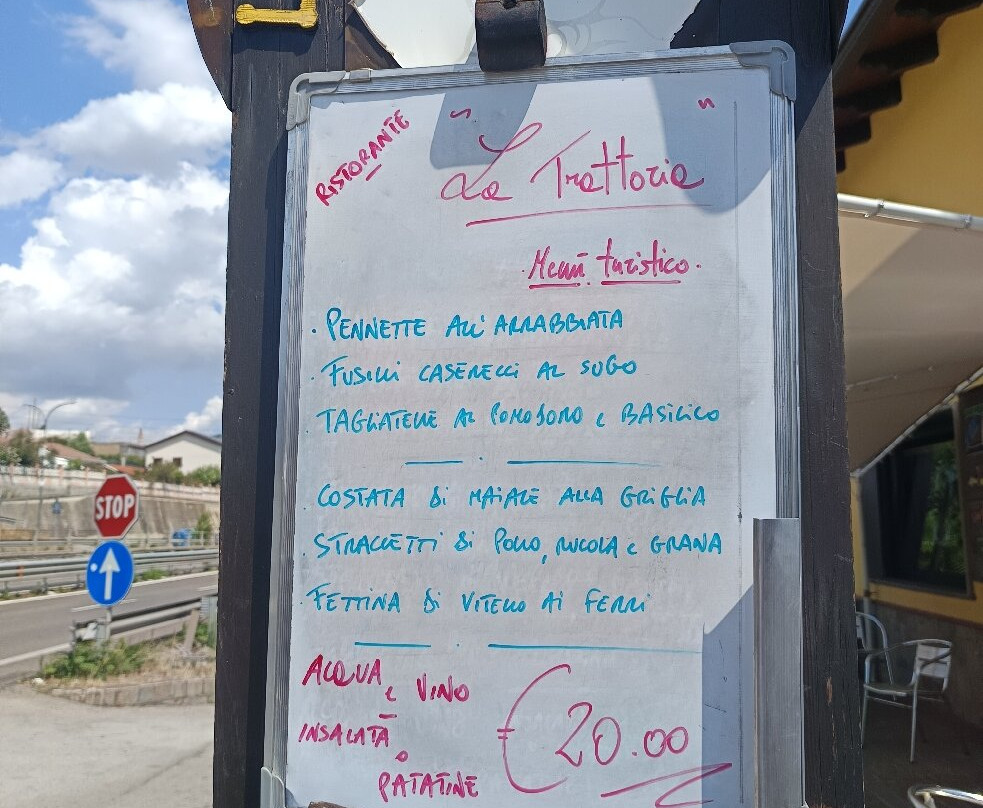 RISTORANTE
"La Trattoria"
· Menù turistico ·
· PENNETTE ALL'ARRABBIATA
· FUSILLI CASERECCI AL SUGO
· TAGLIATELLE AL POMODORO e BASILICO
COSTATA di MAIALE ALLA GRIGLIA
· STRACCETTI di POLLO, RUCOLA e GRANA
· FETTINA di VITELLO AI FERRI
ACQUA e VINO
INSALATA o PATATINE
€ 20.00
STOP